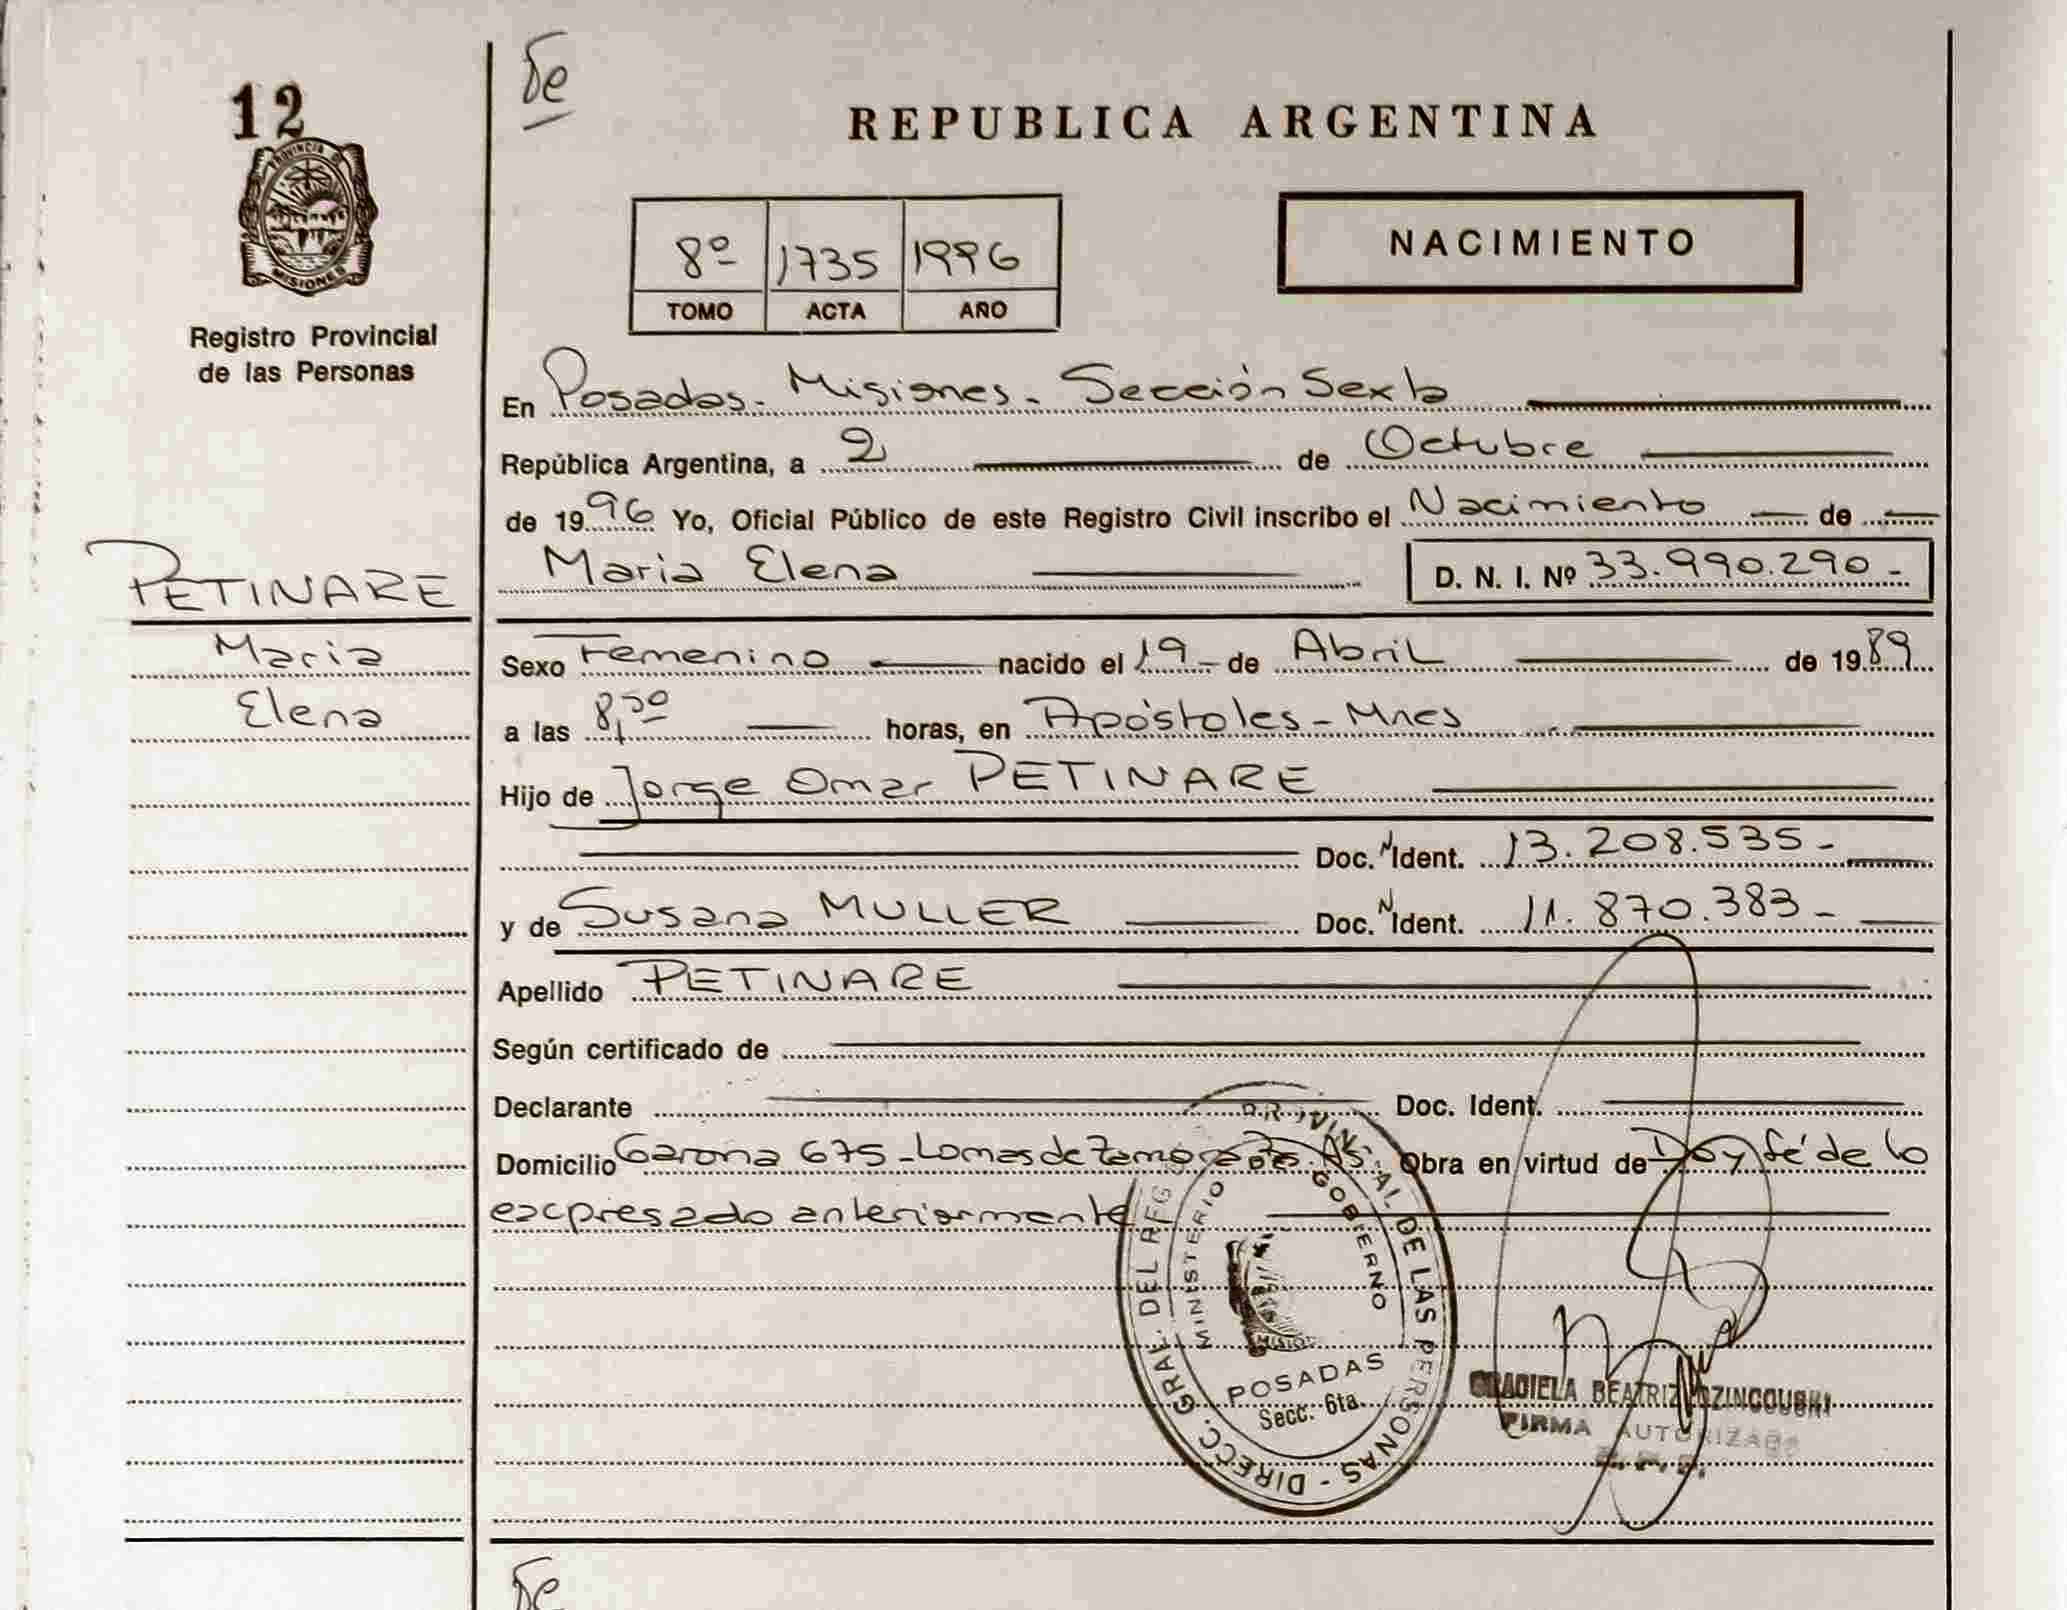 12
PROVINCIA DE
MISIONES
Registro Provincial
de las Personas
REPUBLICA ARGENTINA
8º 1735 1996
TOMO ACTA AÑO
NACIMIENTO
En Posadas - Misiones - Sección Sexta
República Argentina, a 2 de Octubre
de 1996 Yo, Oficial Público de este Registro Civil inscribo el Nacimiento de
Maria Elena D. N. I. Nº 33.990.290 -
PETINARE
Maria
Elena
Sexo Femenino nacido el 19 - de Abril de 1989
a las 8,50 horas, en Apóstoles - Mnes
Hijo de Jorge Omar PETINARE
Doc. N Ident. 13.208.535 -
y de Susana MULLER Doc. N Ident. 11.870.383 -
Apellido PETINARE
Según certificado de
Declarante Doc. Ident.
Domicilio Garona 675 - Lomas de Zamora Bs. As. Obra en virtud de Doy fé de lo
excpresado anteriormente
DIRECC. GRAL. DEL REG PROVINCIAL DE LAS PERSONAS -
MINISTERIO GOBIERNO
POSADAS
Secc. 6ta.
GRACIELA BEATRIZ
FIRMA AUTORIZADA